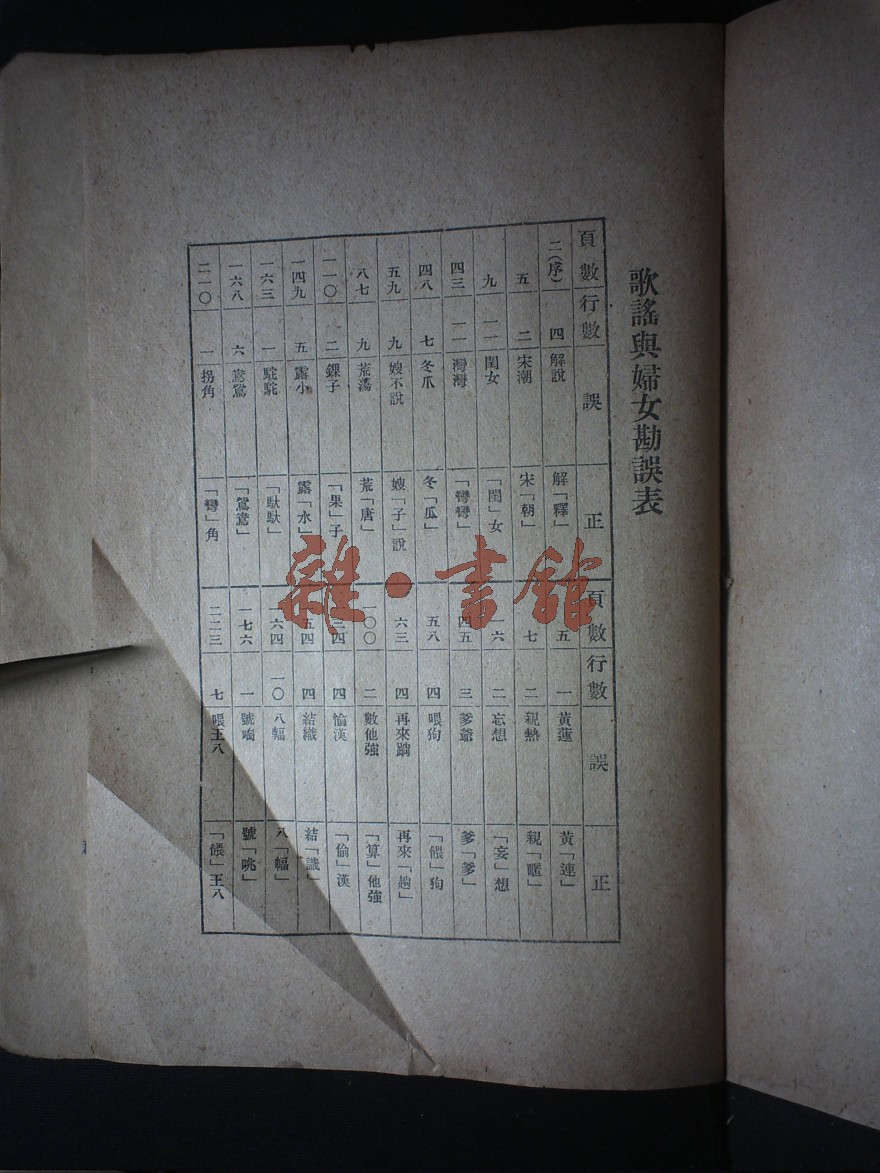 歌謠與婦女勘誤表
頁數 行數 誤 正
二(序) 四 解說 解「釋」
五 二 宋潮 宋「朝」
九 一一 閨女 「閨」女
四三 一一 灣灣 「彎彎」
四八 七 冬爪 冬「瓜」
五九 九 嫂不說 嫂「子」說
八七 九 荒蕩 荒「唐」
一一〇 二 錁子 「果」子
一四九 五 露小 露「水」
一六三 一 駝駝 「馱馱」
一六八 六 鴛鴛 「鴛鴦」
二一〇 一 拐角 「彎」角
頁數 行數 誤 正
五 一 黃蓮 黃「連」
七 二 親熱 親「暱」
一六 二 忘想 「妄」想
四五 三 爹爺 爹「爹」
五八 四 喂狗 「餵」狗
六三 四 再來蹦 再來「趟」
一〇〇 二 數他強 「算」他強
三四 四 愉漢 「偷」漢
五四 四 結織 結「識」
六四 一〇 八輻 八「幅」
一七六 一 號啕 號「咷」
二二三 七 喂王八 「餵」王八
雜·書館